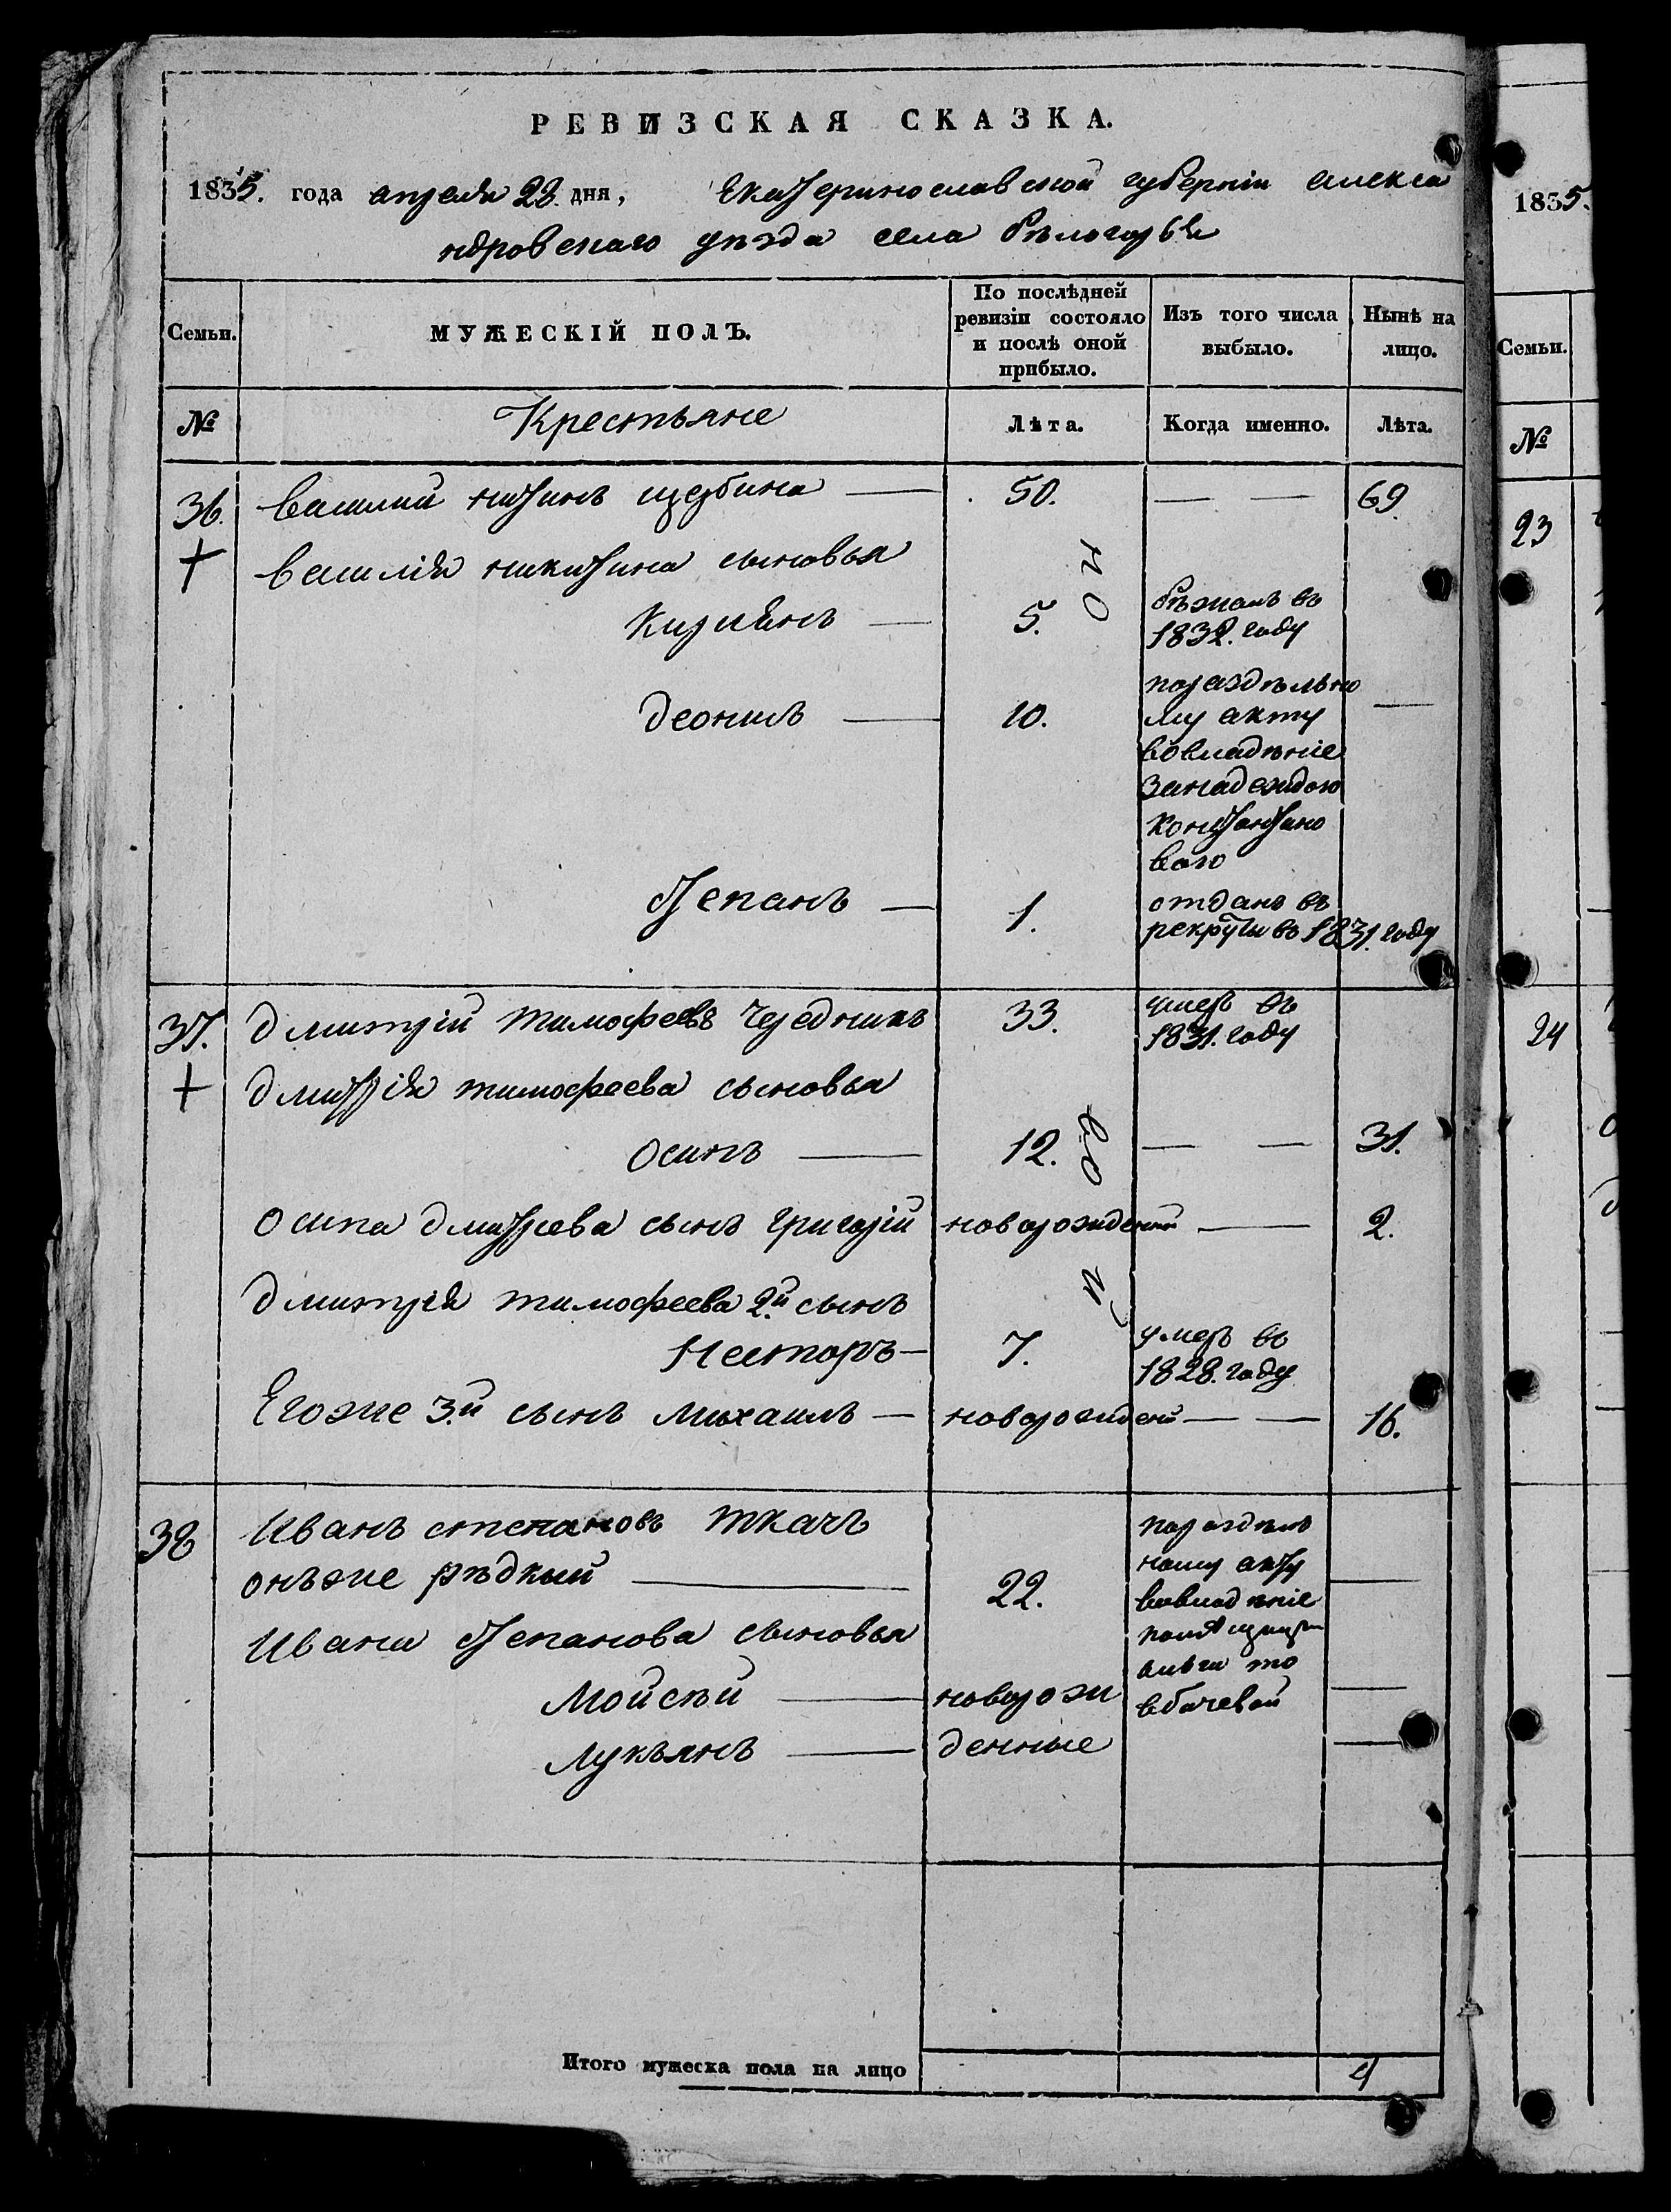 РЕВИЗСКАЯ СКАЗКА.
1835. года апреля 28. дня, Екатеринославской губернiи алекса
ндровскаго уѣзда села бѣлогорья
Семьи.
МУЖЕСКIЙ ПОЛЪ.
По послѣдней
ревизiи состояло
и послѣ оной
прибыло.
Изъ того числа
выбыло.
Нынѣ на
лицо.
№
Крестьяне
Лѣта.
Когда именно.
Лѣта.
36. василий никитинъ щербина — 50. — — 69
+ василiя никитина сыновья
Кирилянъ — 5.
бѣжалъ въ
1832. году
деонил — 10.
поразделъно
му акту
вовладѣнiе
занадеждою
константино
вою
—
степанъ — 1.
отданъ въ
рекруты въ 1831. году
37. дмитрiй тимофеевъ чередникъ 33.
умеръ въ
1831. году
+ дмитрiя тимофеева сыновья
осипъ — 12. — — 31.
осипа дмитрiева сынъ григорiй новорожденный — 2.
дмитрiя тимофеева 2й. сынъ
Несторъ — 7.
умеръ въ
1828. году
Егоже 3.й сынъ михаилъ — новорожденый — — 16.
38 Иванъ степановъ ткачъ
онъже рѣдкий — 22.
поразделъ
ному акту
вовладѣнiе
помѣщицы
—
Ивана степанова сыновья
Мойсѣй — новорож —
Лукъянъ — денные —
но
во
й
Итого мужеска пола на лицо 4
1835.
Семьи.
№
23
24